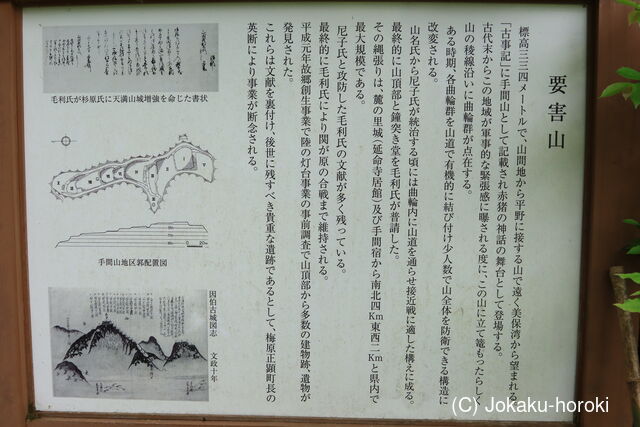 要害山
標高三三四メートルで、山間地から平野に接する山で遠く美保湾から望まれる
「古事記」に手間山として記載され赤猪の神話の舞台として登場する。
古代末からこの地域が軍事的な緊張感に曝される度に、この山に立て篭もったらしく
山の稜線沿いに曲輪群が点在する。
ある時期、各曲輪群を山道で有機的に結び付け少人数で山全体を防衛できる構造に
改変される。
山名氏から尼子氏が統治する頃には曲輪内に山道を通らせ接近戦に適した構えに成る。
最終的に山頂部と鐘突き堂を毛利氏が普請した。
その縄張りは、麓の里城(延命寺居館)及び手間宿から南北四Km東西二Kmと県内で
最大規模である。
尼子氏と攻防した毛利氏の文献が多く残っている。
最終的に毛利氏により関が原の合戦まで維持される。
平成元年故郷創生事業で陸の灯台事業の事前調査で山頂部から多数の建物跡、遺物が
発見された。
これらは文献を裏付け、後世に残すべき貴重な遺跡であるとして、梅原正顕町長の
英断により事業が断念される。
毛利氏が杉原氏に天満山城増強を命じた書状
0 20m
手間山地区郭配置図
因伯古城図志 文政十年
(C) Jokaku-horoki